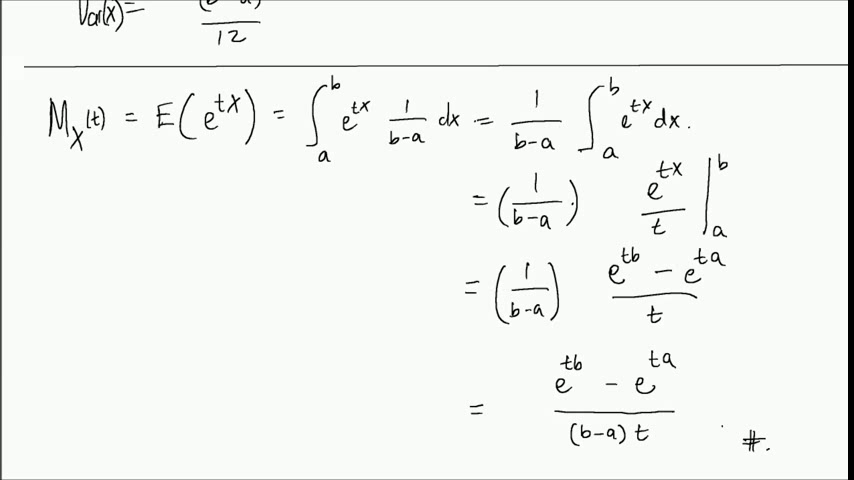 Var(X) =
12
M_X(t) = E(e^{tX}) = ∫_a^b e^{tx} 1/(b-a) dx = 1/(b-a) ∫_a^b e^{tx} dx.
= (1/(b-a)) e^{tx}/t |_a^b
= (1/(b-a)) (e^{tb} - e^{ta})/t
= (e^{tb} - e^{ta})/((b-a) t) #.